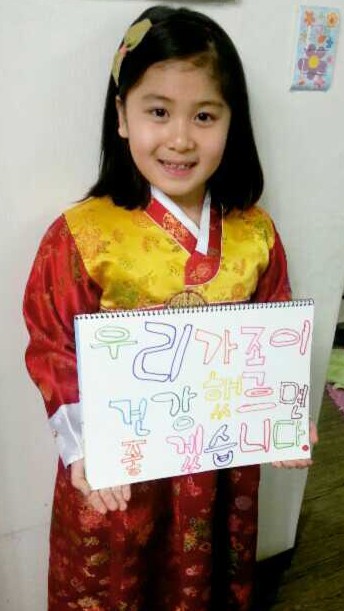 우리가조이
건강했으면
좋겠습니다.